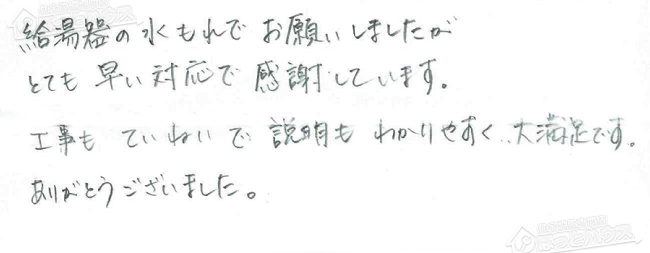 給湯器の水もれでお願いしましたが
とても早い対応で感謝しています。
工事もていねいで説明もわかりやすく、大満足です。
ありがとうございました。